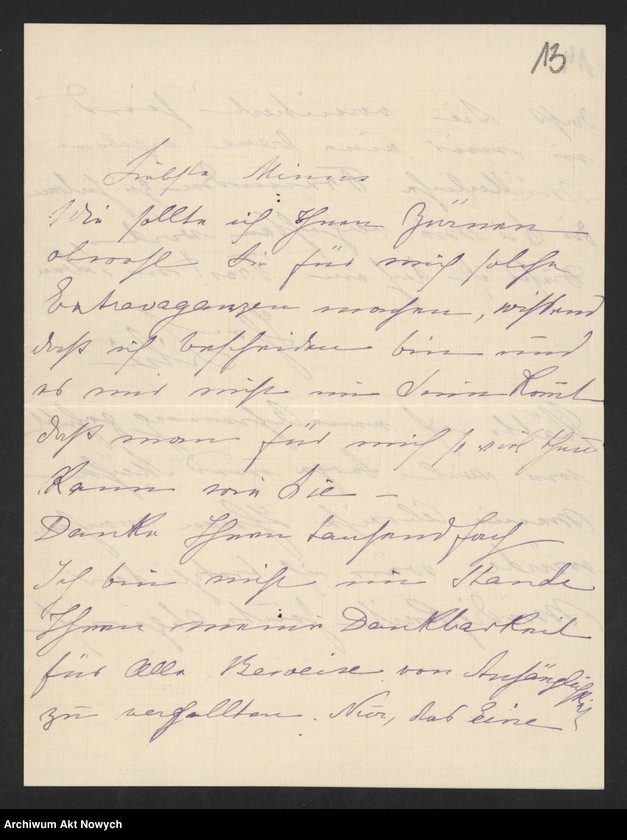 13
Liebste Minus
Wie sollte ich Ihnen Zürnen
obwohl Sie für mich solche
Extravaganzen machen, wissend
daß ich bescheiden bin und
es mir nicht im Sinn komt
daß man für mich so viel thun
kann wie Sie –
Danke Ihnen tausendfach
Ich bin nicht im Stande
Ihnen meine Dankbarkeit
für Alle Beweise von Anhänglichkeit
zu vergellten. Nur, das Eine
Archiwum Akt Nowych